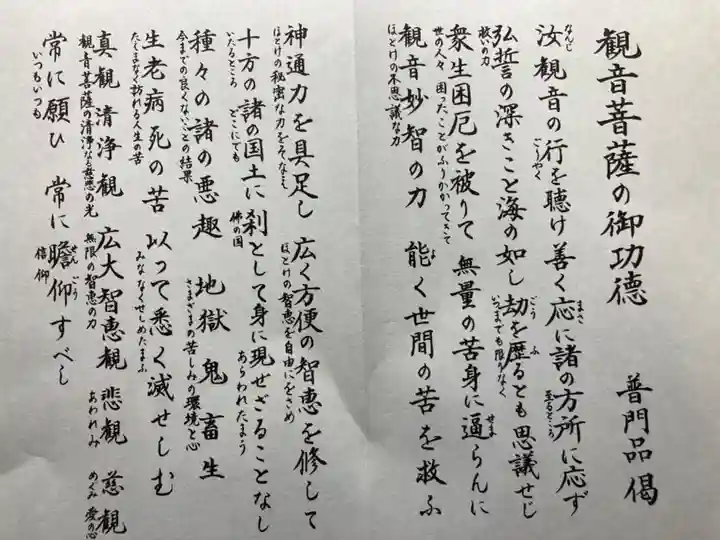 観音菩薩の御功徳　普門品偈
なんじ　ごうやく　まさ　至るところ
汝観音の行を聴け善く応に諸の方所に応ず
救いの力　ごう　ふ　いつまでも限りなく
弘誓の深きこと海の如し劫を歴るとも思議せじ
世の人々　困ったことがふりかかってきて　せま
衆生困厄を被りて　無量の苦身に逼らんに
ほとけの不思議な力　よ
観音妙智の力　能く世間の苦を救ふ
神通力を具足し　広く方便の智恵を修して
ほとけの秘密な力をそなえ　ほとけの智恵を自由にをさめ
十方の諸の国土に　刹として身に現ぜざることなし
いたるところ　どこにでも　佛の国　あらわれたまう
種々の諸の悪趣　地獄鬼畜生
今までの良くないことの結果　さまざまの苦しみの環境と心
生老病死の苦　以って悉く滅せしむ
たえまなく訪れる人生の苦　みななくせしめたまふ
真観清浄観　広大智恵観　悲観　慈観
観音菩薩の清浄なる慈悲の光　無限の智恵の力　あわれみ　めぐみ　愛の心
常に願ひ　常に瞻仰すべし
いつもいつも　せん　ごう　信仰